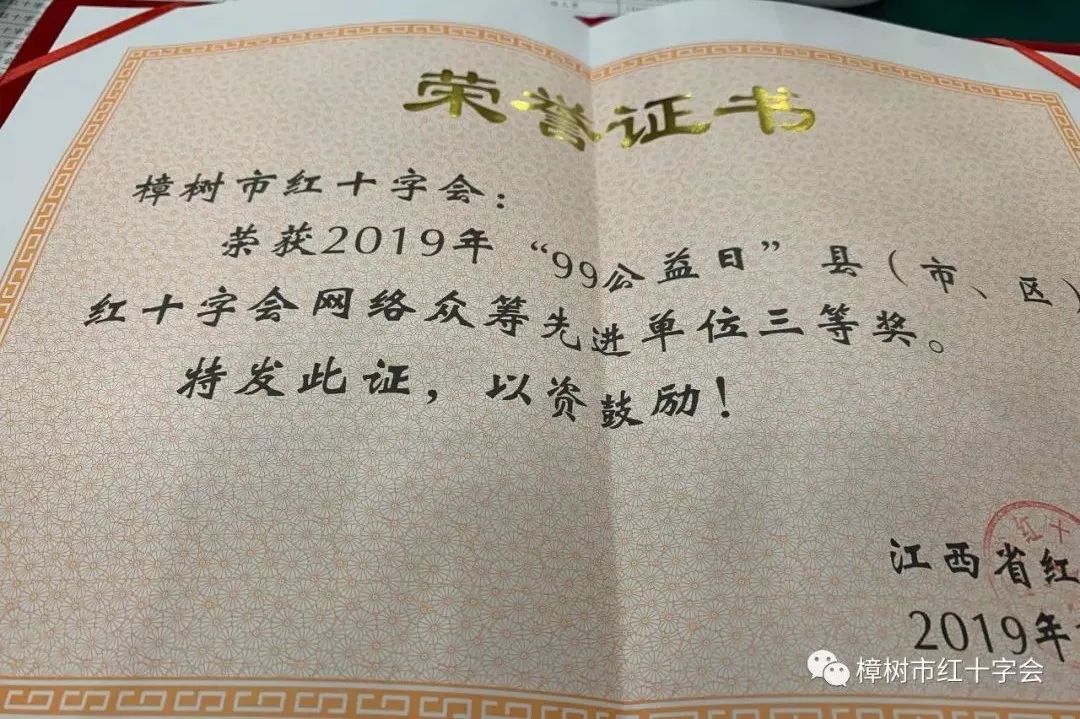 荣誉证书
樟树市红十字会：
荣获2019年“99公益日”县（市、区）
红十字会网络众筹先进单位三等奖。
特发此证，以资鼓励！
红十
江西省红
2019年
樟树市红十字会